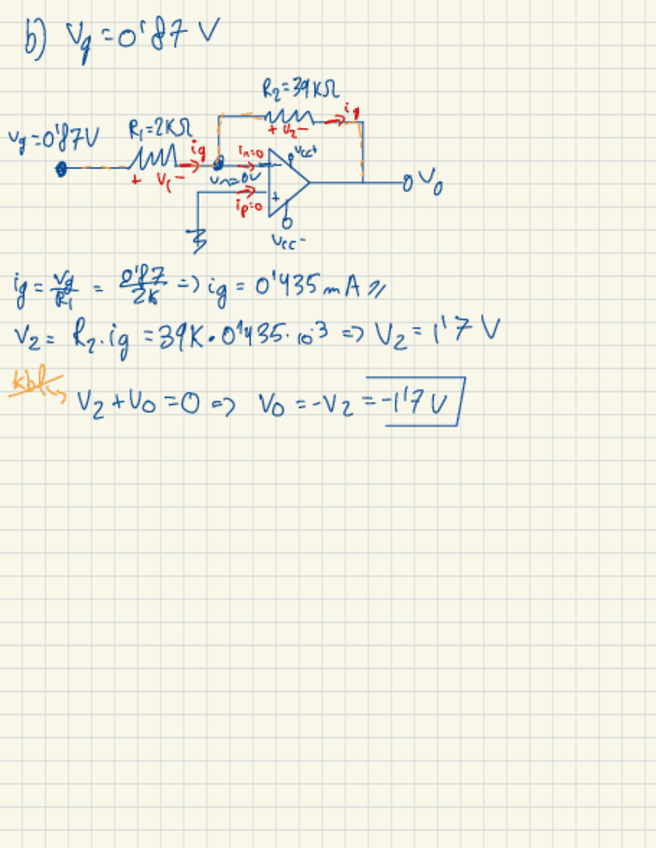 b) Vg = 0'87 V
R₂ = 39KΩ
ig
+ V₂ -
Vg = 0'87V
R₁ = 2KΩ
ig
+ V₁ -
in=0
Vn=0V
Vcc+
ip=0
+
Vcc-
V₀
ig = Vg/R₁ = 0'87/2K => ig = 0'435 mA //
V₂ = R₂·ig = 39K·0'435·10⁻³ => V₂ = 1'7 V
V₂ + V₀ = 0 => V₀ = -V₂ = -1'7 V